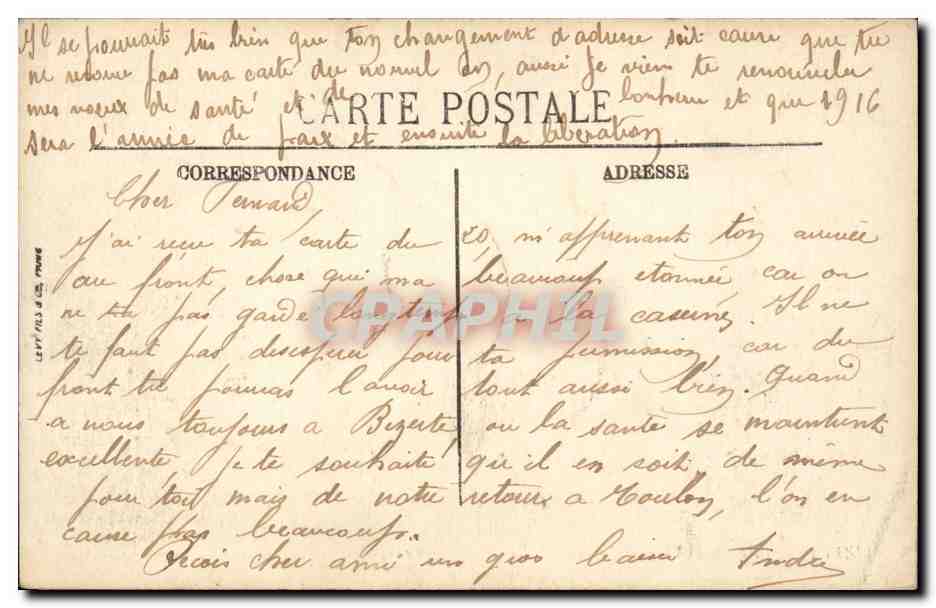 Il se pourrait très bien que ton changement d'adresse soit cause que tu
ne recoive pas ma carte du nouvel an, aussi je viens te renouveler
mes voeux de santé et de bonheur et que 1916
CARTE POSTALE
sera l'année de paix et ensuite la libération.
CORRESPONDANCE
ADRESSE
Cher Fernand,
J'ai reçu ta carte du 20, m'apprenant ton arrivée
au front, chose qui m'a beaucoup etonnée car on
ne te pas garde longtemps a la caserne. Il ne
te faut pas desesperer pour ta permission, car du
front tu pourras l'avoir tout aussi bien. Quand
a nous toujours a Bizerte, ou la santé se maintient
excellente, je te souhaite qu'il en soit de même
pour toi mais de notre retour a Toulon, l'on en
cause pas beaucoup.
Recois cher ami un gros baiser André
LEVY FILS & CIE, PARIS
CPAPHIL